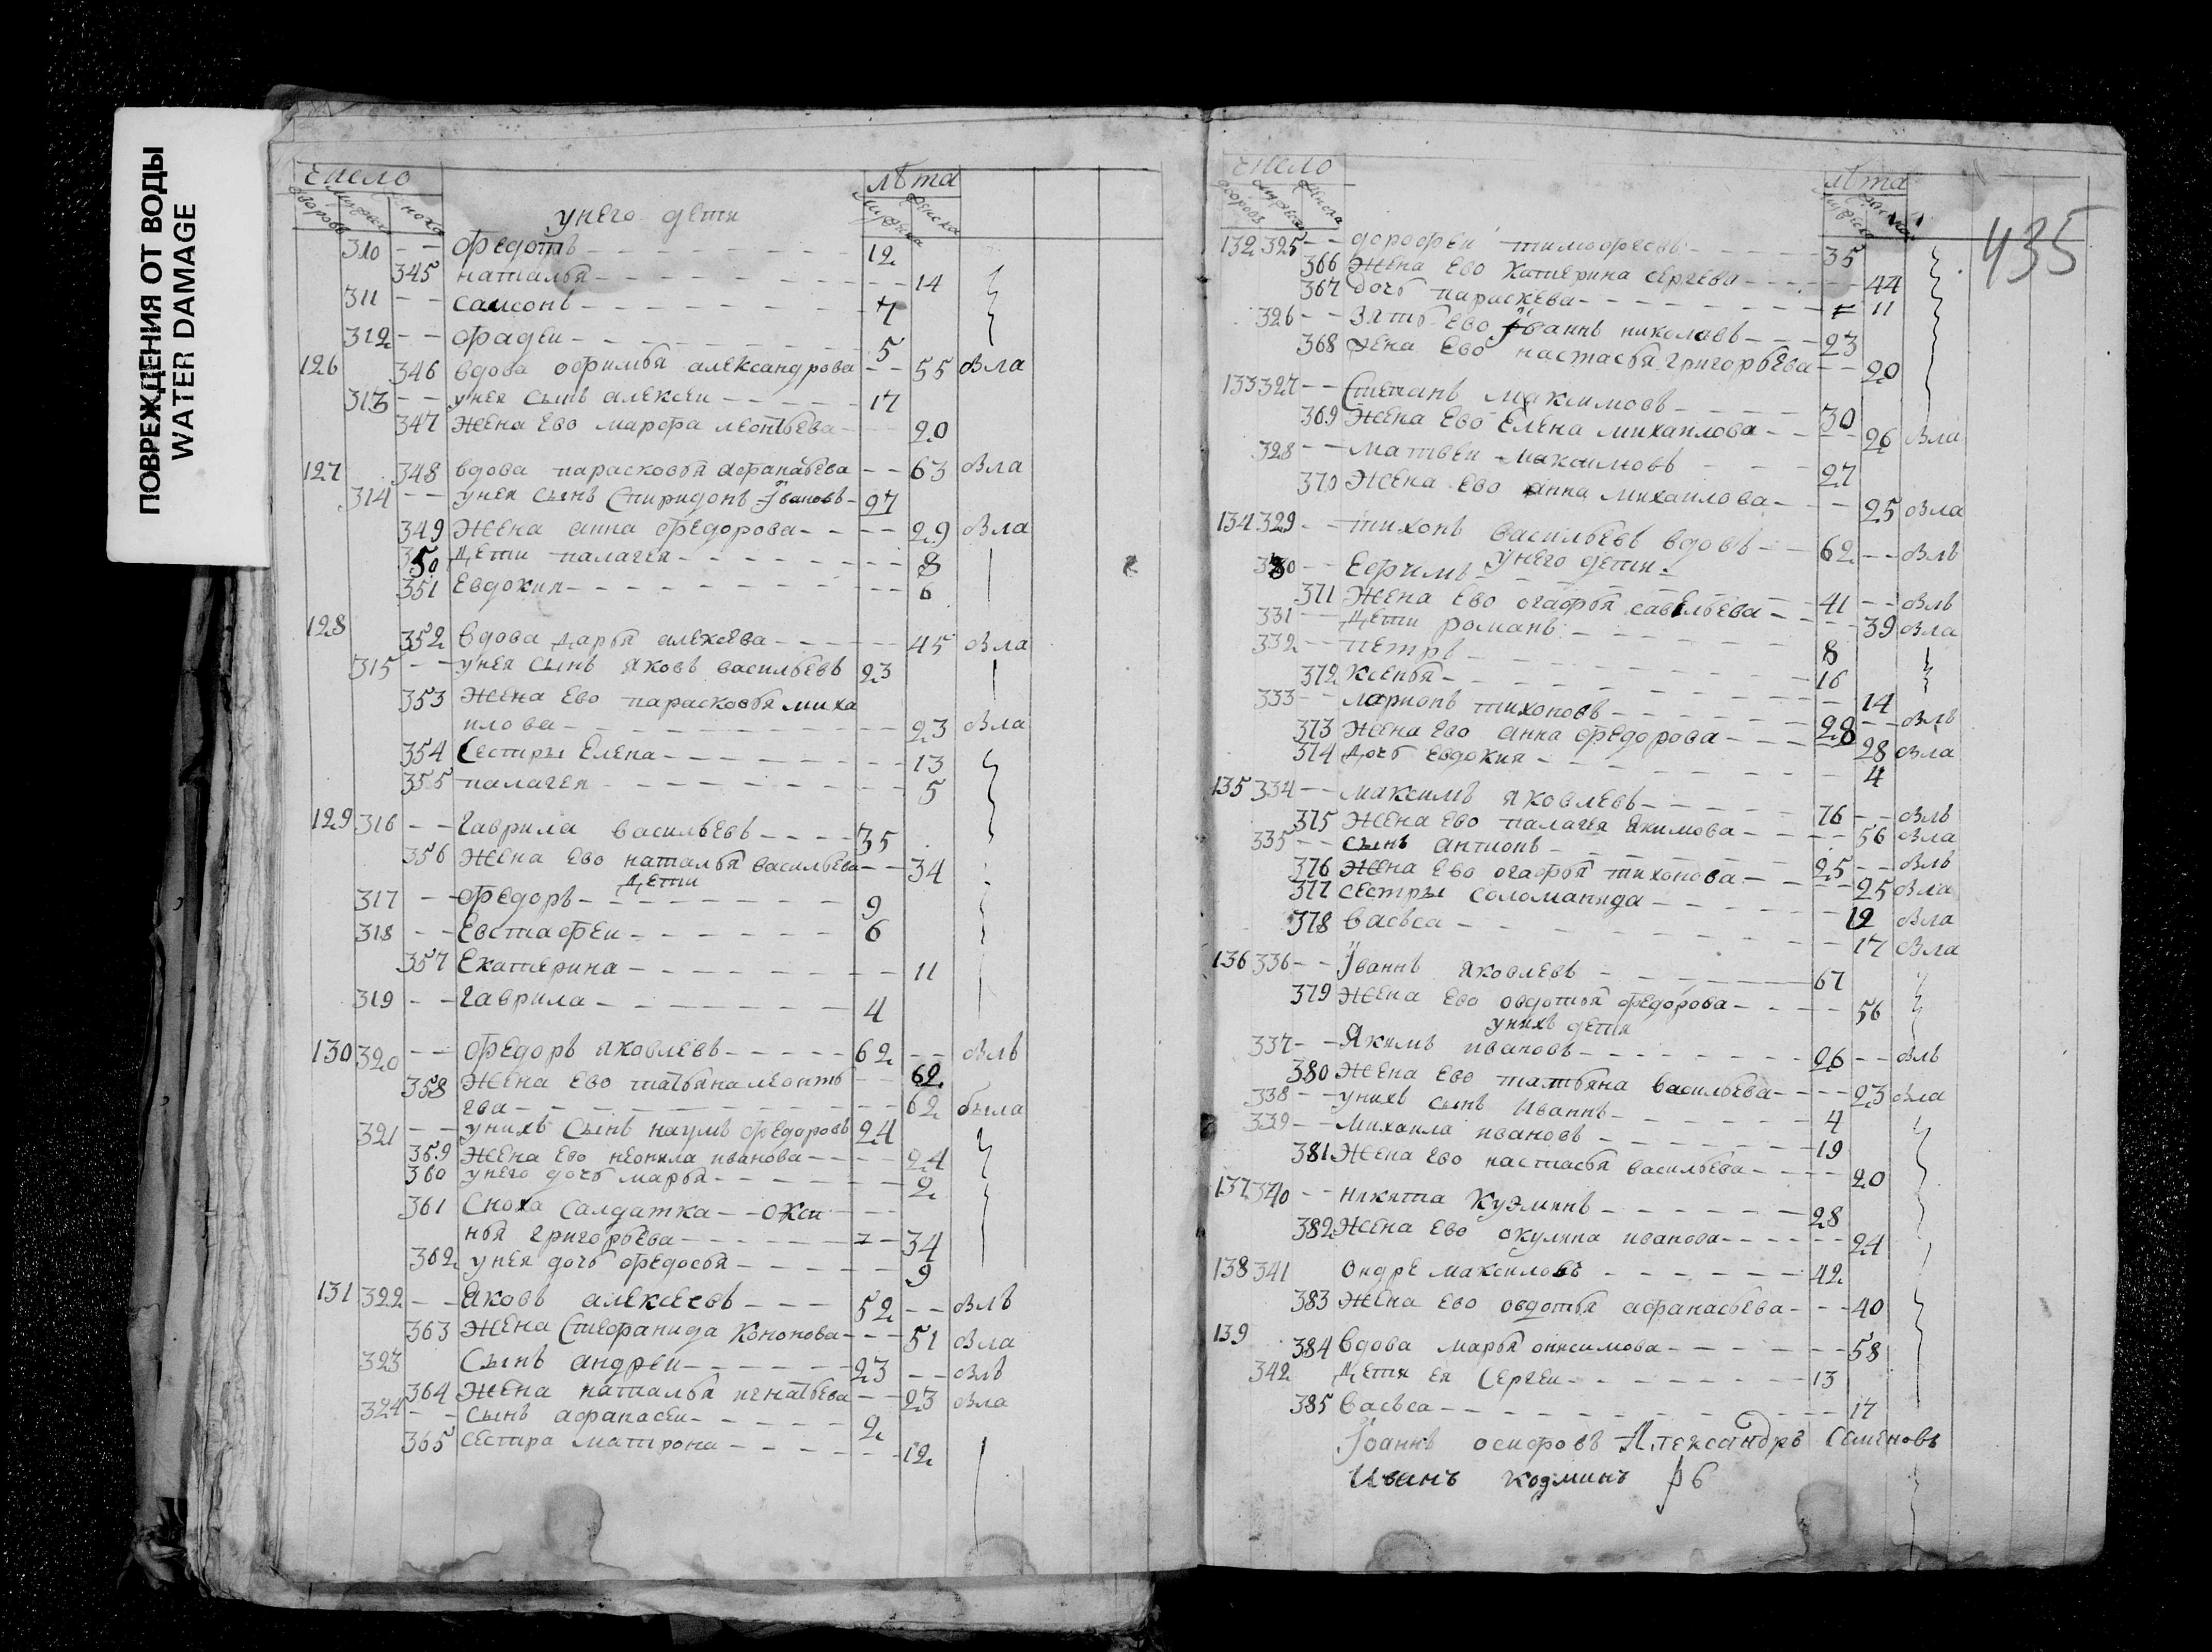 ПОВРЕЖДЕНИЯ ОТ ВОДЫ
WATER DAMAGE
число
лѣта
унего дети
310 - - федотъ - - - 12
345 наталья - - - 14
311 - - самсонъ - - - 7
312 - - фадеи - - - 5
126 346 вдова офимья александрова - - 55 вла
313 - - унея сынъ алексеи - - - 17
347 жена ево марфа леонтьева - - 20
127 348 вдова парасковья афанасьева - - 63 вла
314 - - унея сынъ спиридонъ Iвановъ - 27
349 жена анна федорова - - - 29 вла
350 дети палагея - - - 8
351 Евдокия - - - 6
128 352 вдова дарья алексева - - - 45 вла
315 - - унея сынъ яковъ васильевъ 23
353 жена ево парасковья миха
илова - - - 23 вла
354 сестры Елена - - - 13
355 палагея - - - 5
129 316 - - гаврила васильевъ - - - 35
356 жена ево наталья васильева - - 34
дети
317 - - федоръ - - - 9
318 - - Евстафеи - - - 6
357 Екатерина - - - 11
319 - - гаврила - - - 4
130 320 - - федоръ яковлевъ - - - 62 - - влъ
358 жена ево татьяна леонть - - 62
ева - - - 62 была
321 - - унихъ сынъ наумъ федоровъ 24
359 жена ево неонила иванова - - - 24
360 унего дочь марья - - - 2
361 Сноха салдатка - - окси - -
нья григорьева - - - 34
362 унея дочь федосья - - - 9
131 322 - - яковъ алексеевъ - - - 52 - - влъ
363 жена стефанида кононова - - - 51 вла
323 Сынъ андреи - - - 23 - - влъ
364 жена наталья игнатьева - - 23 вла
324 - - сынъ афанасеи - - - 2
365 сестра матрона - - - 12
435
число
лѣта
132 325 - - дорофеи тимофеевъ - - - 35
366 жена ево катерина сергева - - - 44
367 дочь параскева - - - 11
326 - - зять ево Iваннъ николавъ - - - 23
368 жена ево настасья григорьева - - 20
133 327 - - Степанъ максимовъ - - - 30
369 жена ево Елена михаилова - - - 26 вла
328 - - матвеи максимовъ - - - 27
370 жена ево анна михаилова - - - 25 вла
134 329 - - тихонъ васильевъ вдовъ - - 62 - - влъ
унего дети
330 - - Ефимъ - - - 41 - - влъ
371 жена ево огафья савельева - - - 39 вла
331 - - дети романъ - - - 8
332 - - петръ - - - 16
372 ксенья - - - 14
333 - - ларионъ тихоновъ - - - 28 - - влъ
373 жена ево анна федорова - - - 28 вла
374 дочь евдокия - - - 4
135 334 - - максимъ яковлевъ - - - 76 - - влъ
375 жена ево палагея якимова - - - 56 вла
335 - - сынъ антионъ - - - 25 - - влъ
376 жена ево огафья тихонова - - - 25 вла
377 сестры соломанида - - - 12 вла
378 васьса - - - 17 вла
136 336 - - Iваннъ яковлевъ - - - 67
379 жена ево овдотья федорова - - - 56
унихъ дети
337 - - Якимъ ивановъ - - - 26 - - влъ
380 жена ево татьяна васильева - - - 23 вла
338 - - унихъ сынъ иваннъ - - - 4
339 - - михаила ивановъ - - - 19
381 жена ево настасья васильева - - - 20
137 340 - - никита кузминъ - - - 28
382 жена ево окулина иванова - - - 24
138 341 ондре максиловъ - - - 42
383 жена ево овдотья афанасьева - - - 40
139 384 вдова марья онисимова - - - 58
342 дети ея сергеи - - - 13
385 васьса - - - 17
Iоаннъ осифовъ Александръ Семеновъ
Иванъ козминъ